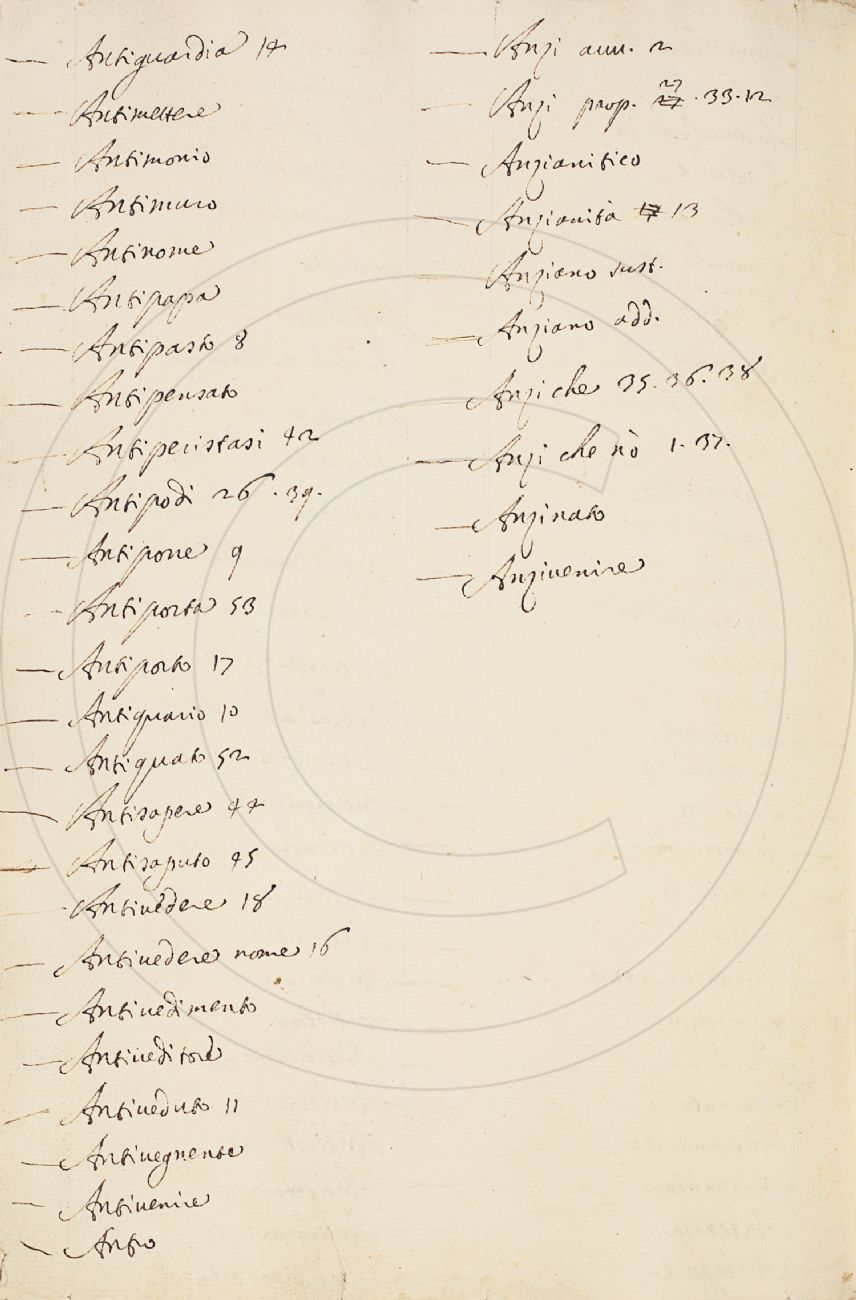 — Antiguardia 14
— Antimettere
— Antimonio
— Antimuro
— Antinome
— Antipapa
— Antipasto 8
— Antipensato
— Antiperistasi 42
— Antipodi 26. 39.
— Antiporre 9
— Antiporta 53
— Antiporto 17
— Antiquario 10
— Antiquato 52
— Antisapere 44
— Antisaputo 45
— Antivedere 18
— Antivedere nome 16
— Antivedimento
— Antiveditore
— Antiveduto 11
— Antivegnente
— Antivenire
— Antro
— Anzi avv. 2
— Anzi prep. 27. 33. 12
— Anzianitico
— Anzianità 13
— Anziano sust.
— Anziano add.
— Anzi che 35. 36. 38
— Anzi che nò 1. 37.
— Anzinato
— Anzivenire